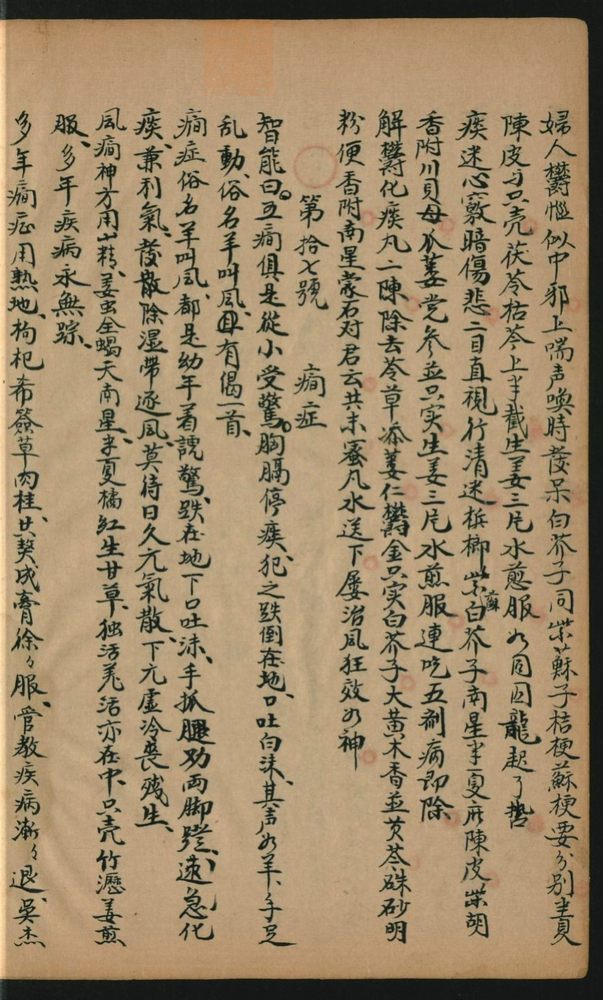 婦人欝惱似中邪上喘声喚時發呆白芥子同柴蘇子桔梗蘇梗要分別半貢
陳皮与只壳茯苓枯芩上半截生姜三片水煎服如同囚龍起了
痰迷心竅暗傷悲二目直視行清迷梹榔柴蘇白芥子南星半夏麻陳皮柴胡
香附川貝母瓜蔞党参並只实生姜三片水煎服連吃五剤病即除
解欝化痰丸二陳除去苓草添蔞仁欝金只实白芥子大黄木香並芡苓硃砂明
粉便香附南星蒙石对君云共末蜜凡水送下屡治風狂效如神
第拾七號 癎症
智能曰五癎俱是從小受驚胸膈停痰犯之跌倒在地口吐白沫其声如羊手足
乱動俗名羊叫風且有偈一首
癎症俗名羊叫風都是幼年着諕驚跌在地下口吐沫手抓腿功両脚蹬速急化
痰兼利氣發散除湿帶逐風莫待日久亢氣散下亢虛冷喪残生
風癎神方用山精姜虫全蝎天南星半夏橘紅生甘草独活羌活亦在中只壳竹瀝姜煎
服多年疾病永無踪
多年癎症用熟地枸杞希簽草肉桂共獎成膏徐々服管教疾病漸々退吳杰